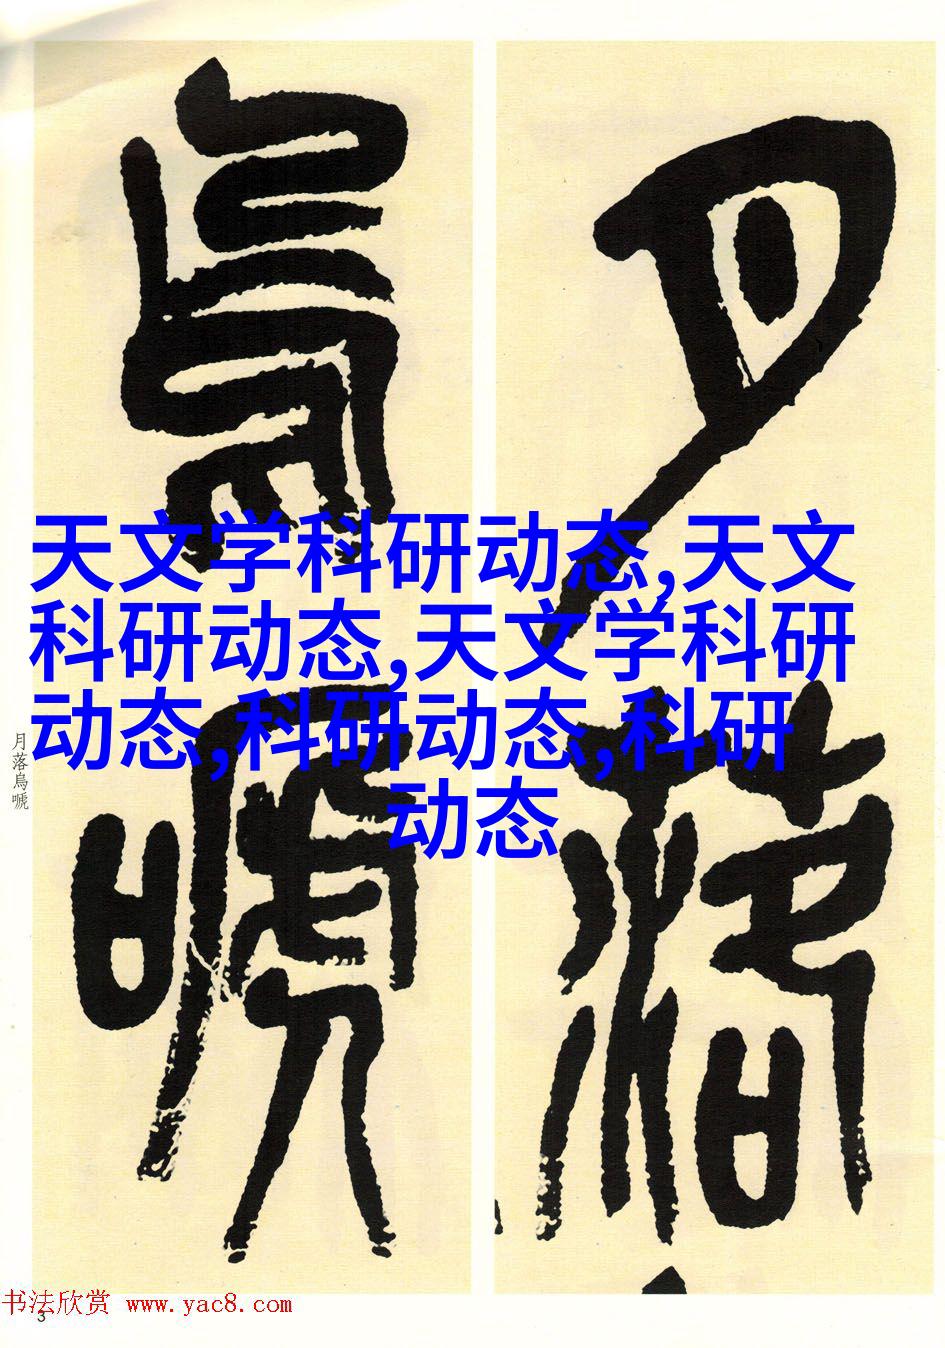 月落
烏嗁
天文学科研动态,天文
科研动态,天文学科研
动态,科研动态,科研
动态
月落烏嗁
书法欣赏 www.yac8.com
3